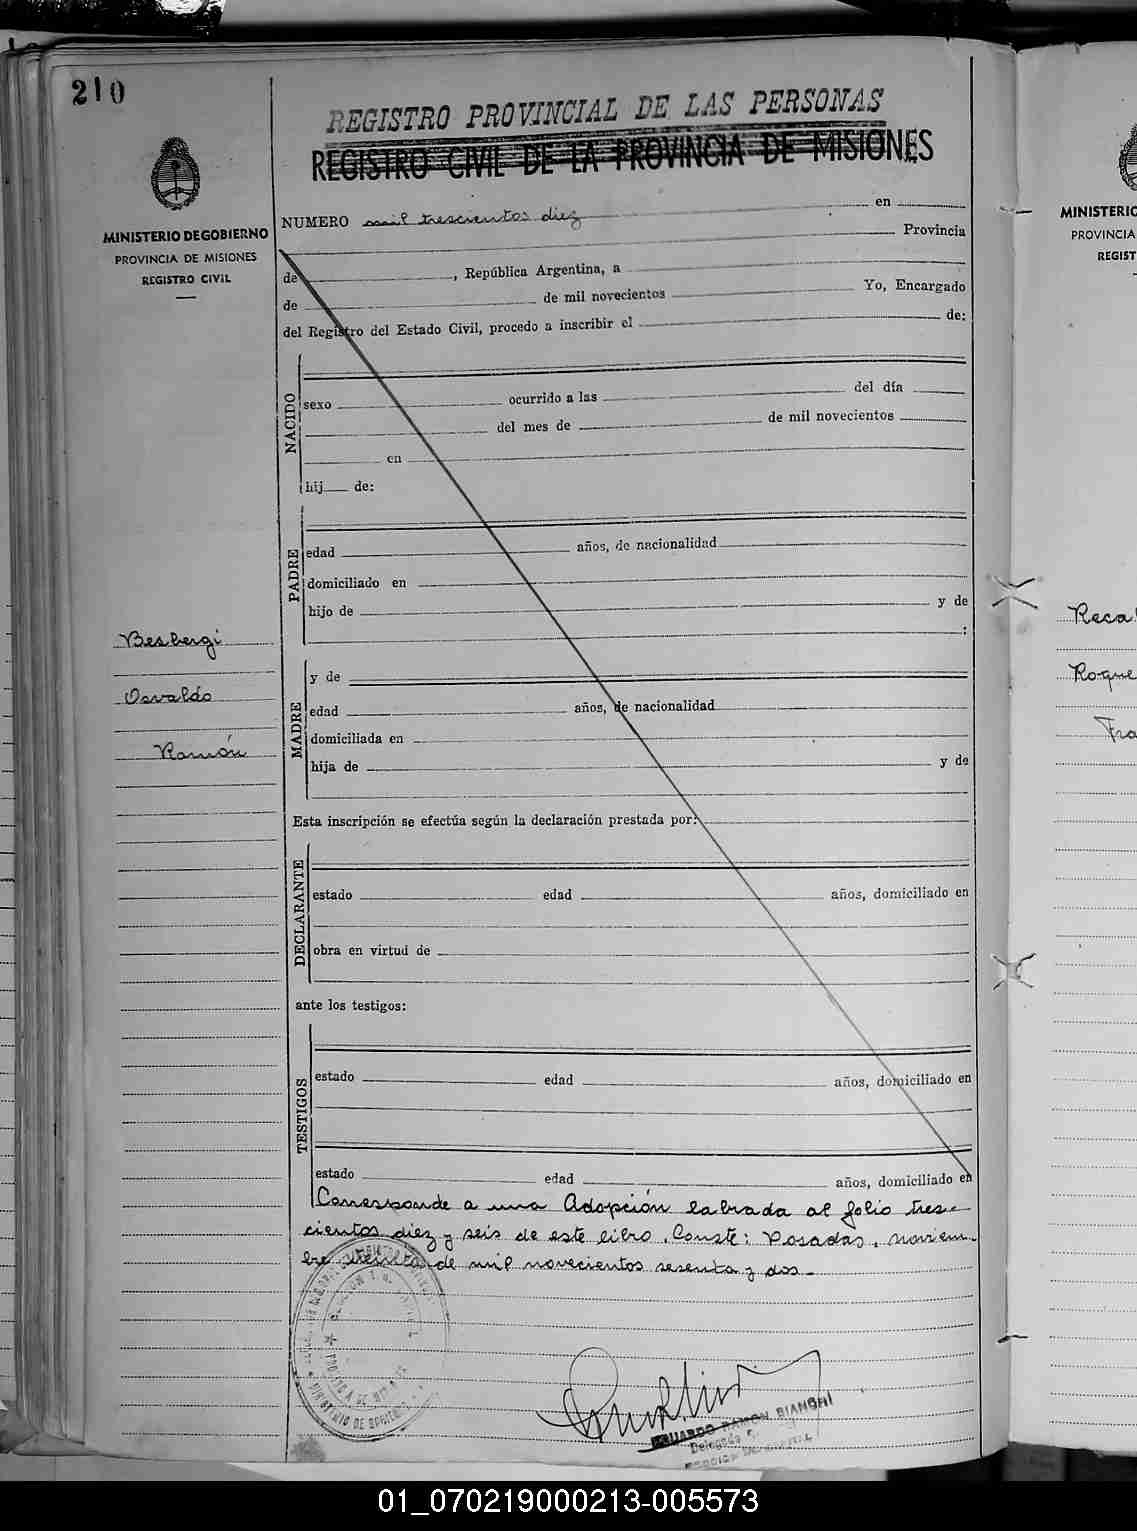 210
REGISTRO PROVINCIAL DE LAS PERSONAS
REGISTRO CIVIL DE LA PROVINCIA DE MISIONES
MINISTERIO DE GOBIERNO
PROVINCIA DE MISIONES
REGISTRO CIVIL
NUMERO mil trescientos diez en
Provincia
de , República Argentina, a
de de mil novecientos Yo, Encargado
del Registro del Estado Civil, procedo a inscribir el de:
NACIDO
sexo ocurrido a las del día
del mes de de mil novecientos
en
hij de:
PADRE
edad años, de nacionalidad
domiciliado en
hijo de y de
:
Besbergi
Osvaldo
Ramón
MADRE
y de
edad años, de nacionalidad
domiciliada en
hija de y de
Esta inscripción se efectúa según la declaración prestada por:
DECLARANTE
estado edad años, domiciliado en
obra en virtud de
ante los testigos:
TESTIGOS
estado edad años, domiciliado en
estado edad años, domiciliado en
Corresponde a una Adopción labrada al folio tres-
cientos diez y seis de este libro. Conste: Posadas, noviem-
bre treinta de mil novecientos sesenta y dos.-
MINISTERIO DE GOBIERNO
EDUARDO RAMON BIANGHI
Delegado
MINISTERIO
PROVINCIA
REGIST
Reca
Roque
Fra
01_070219000213-005573